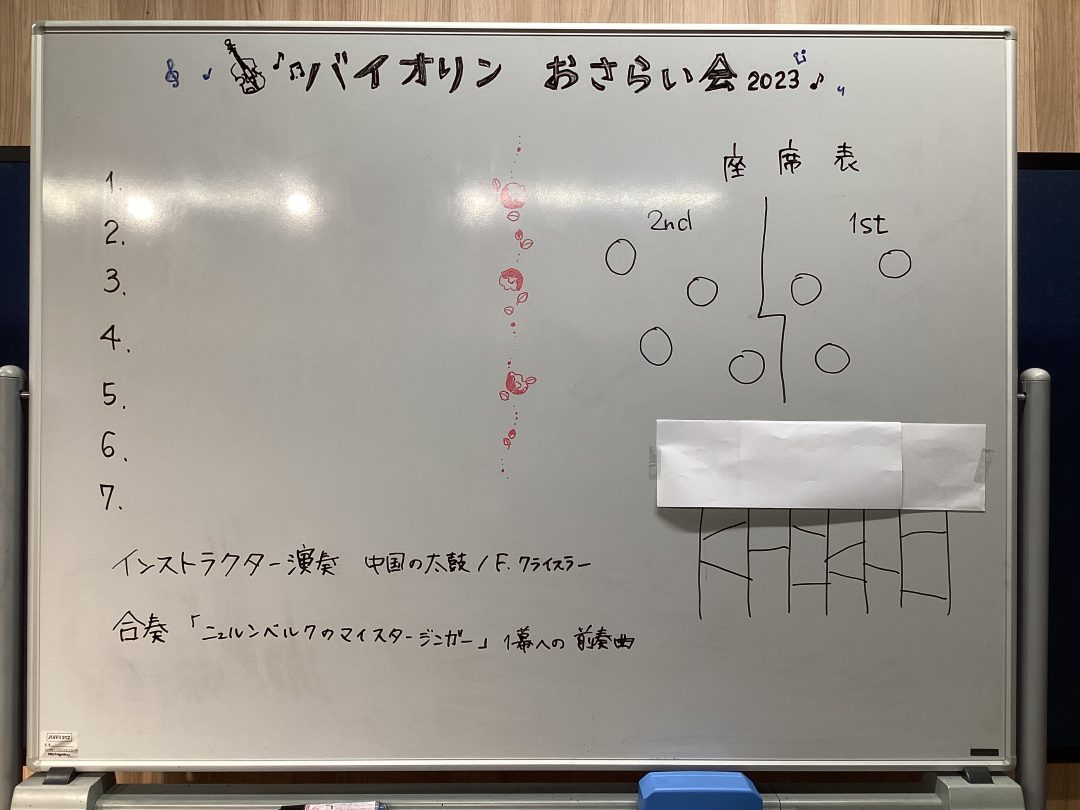 バイオリン おさらい会 2023
座席表
2nd 1st
1.
2.
3.
4.
5.
6.
7.
インストラクター演奏 中国の太鼓 / F. クライスラー
合奏 「ニュルンベルクのマイスタージンガー」 1幕への前奏曲